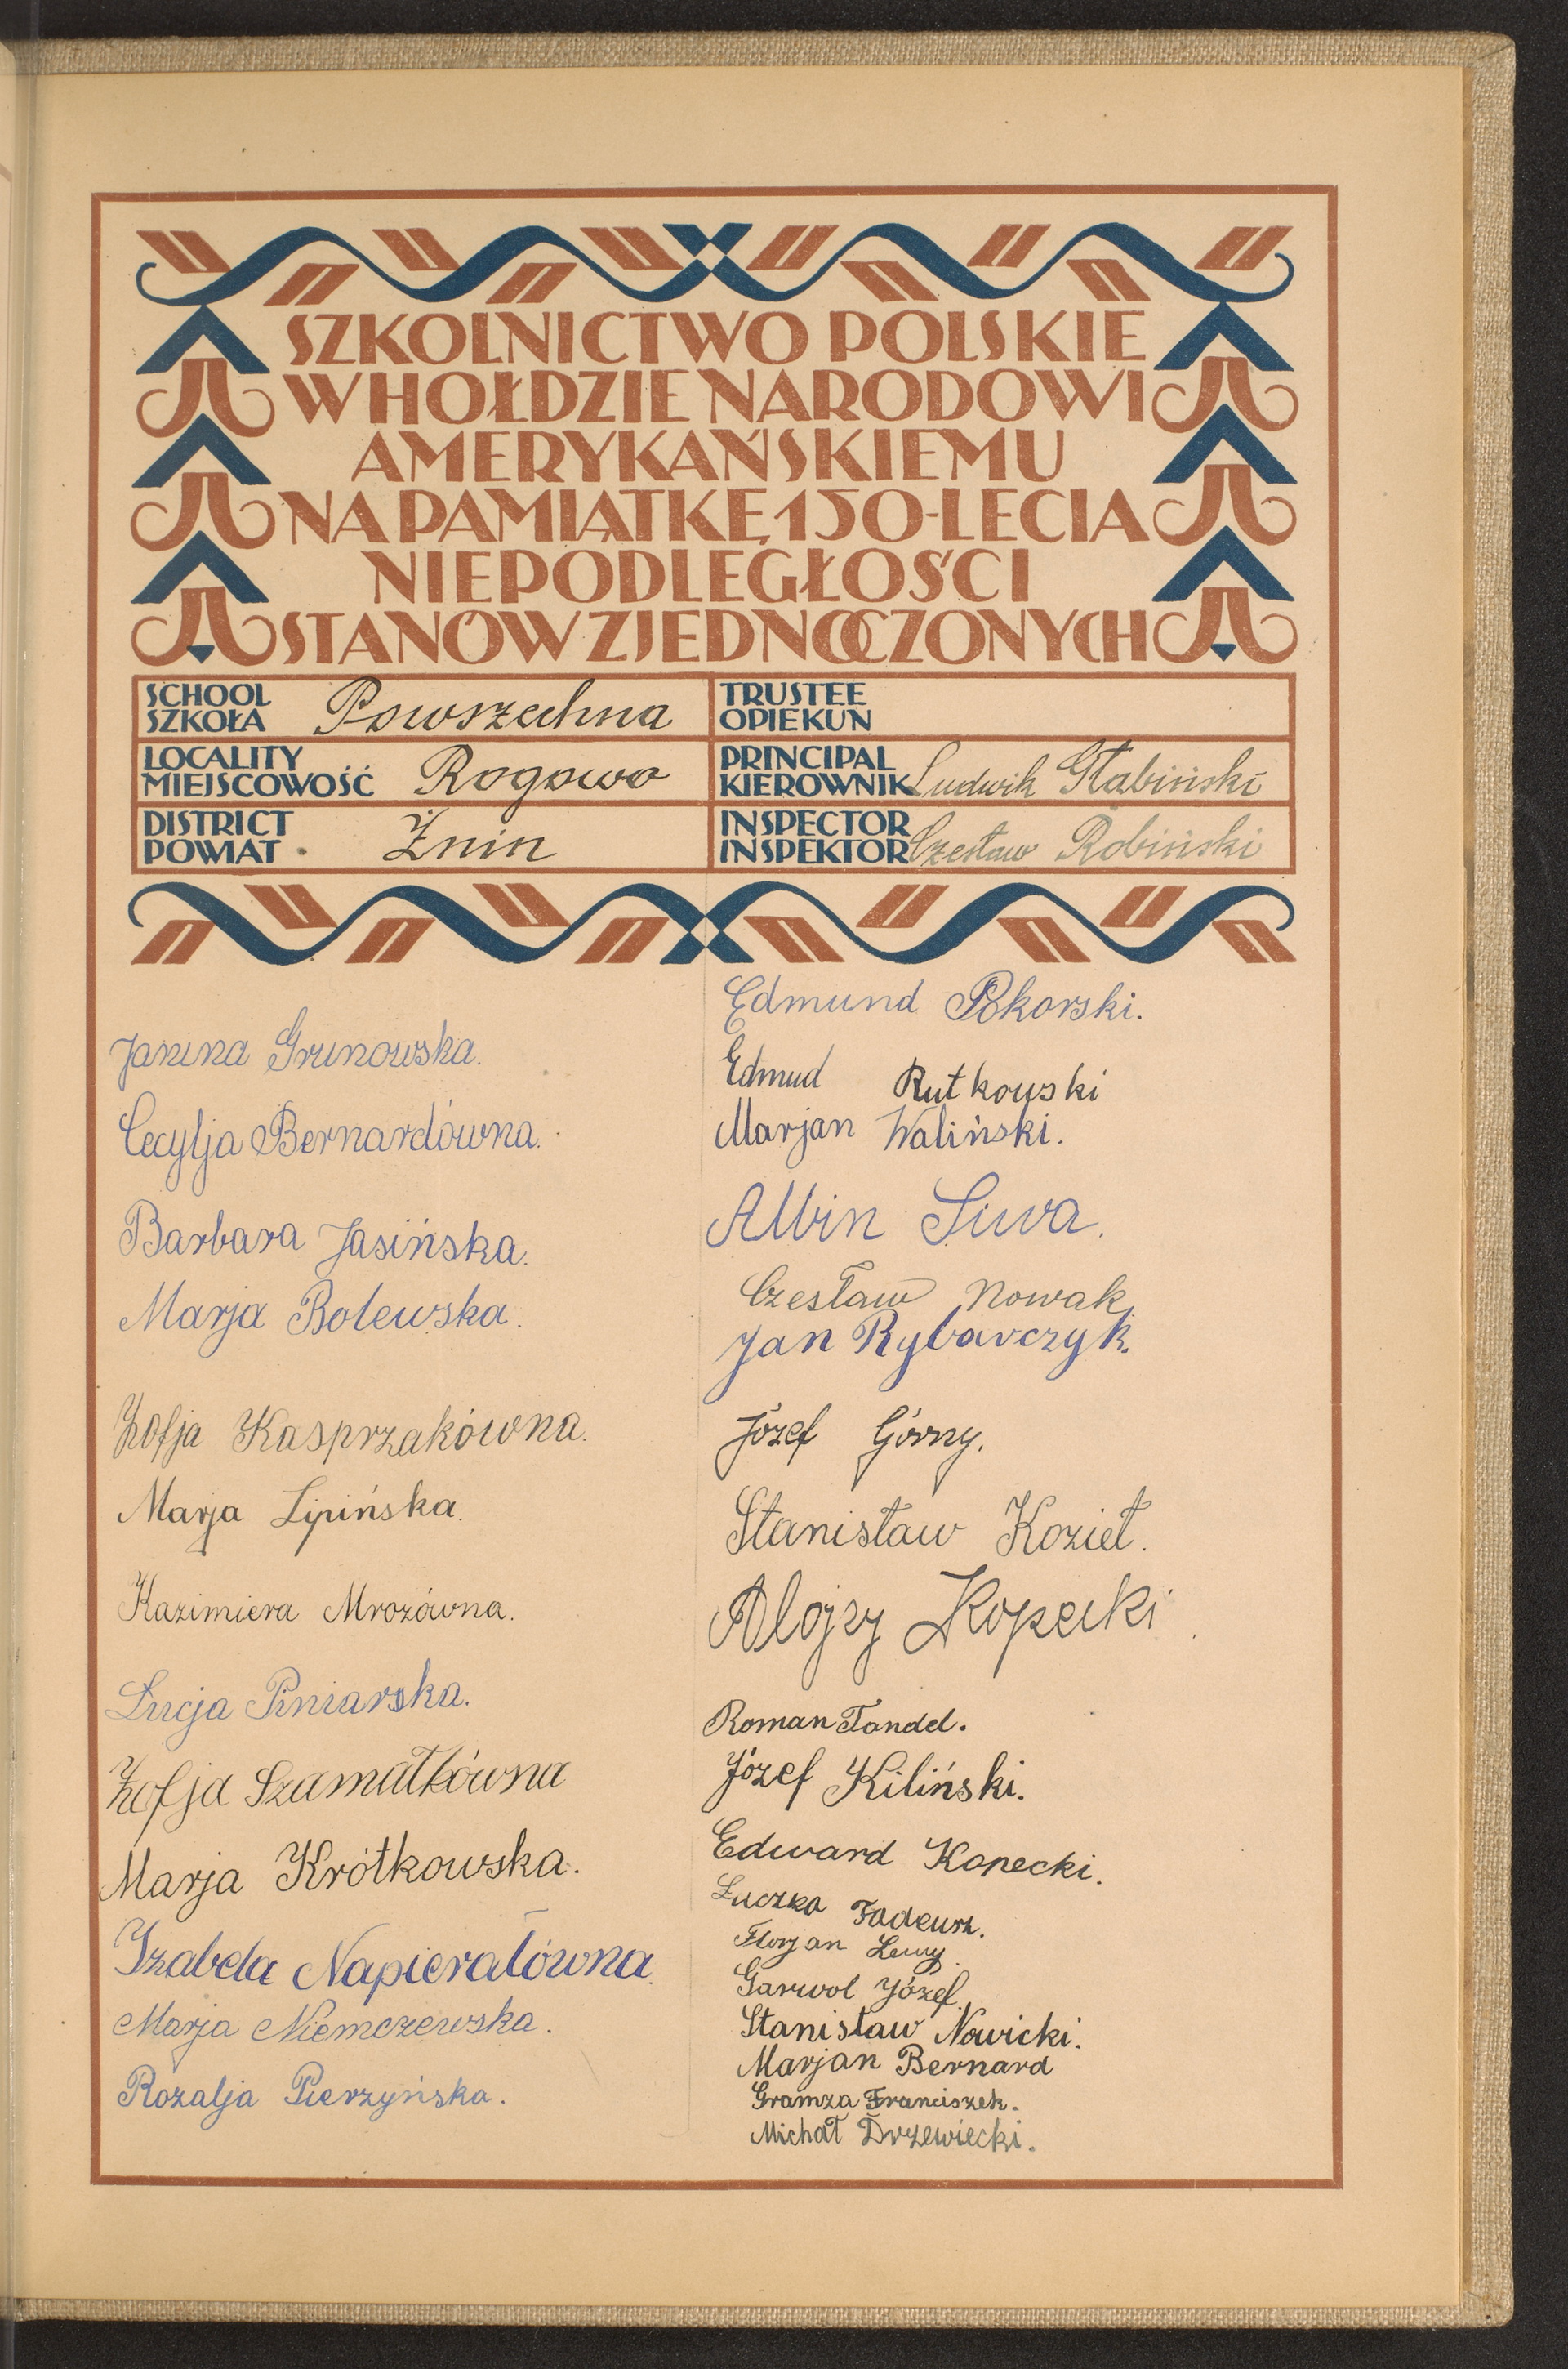 SZKOLNICTWO POLSKIE
W HOŁDZIE NARODOWI
AMERYKAŃSKIEMU
NA PAMIĄTKĘ 150-LECIA
NIEPODLEGŁOŚCI
STANÓW ZJEDNOCZONYCH
SCHOOL
SZKOŁA Powszechna
TRUSTEE
OPIEKUN
LOCALITY
MIEJSCOWOŚĆ Rogowo
PRINCIPAL
KIEROWNIK Ludwik Głabiński
DISTRICT
POWIAT Żnin
INSPECTOR
INSPEKTOR Czesław Robiński
Janina Grunowska.
Cecylja Bernardówna.
Barbara Jasińska.
Marja Bolewska.
Zofja Kasprzakówna.
Marja Lipińska.
Kazimiera Mrozówna.
Łucja Piniarska.
Zofja Szamałkówna
Marja Krótkowska.
Izabela Napierałówna.
Marja Niemczewska.
Rozalja Pierzyńska.
Edmund Pokorski.
Edmud Rutkowski
Marjan Waliński.
Albin Siwa.
Czesław Nowak
Jan Rybarczyk.
Józef Górny.
Stanisław Kozieł.
Alojzy Kopecki
Roman Tandel.
Józef Kiliński.
Edward Kopecki.
Łuczka Tadeusz.
Florjan Lewy.
Garwol Józef.
Stanisław Nowicki.
Marjan Bernard
Gramza Franciszek.
Michał Drzewiecki.